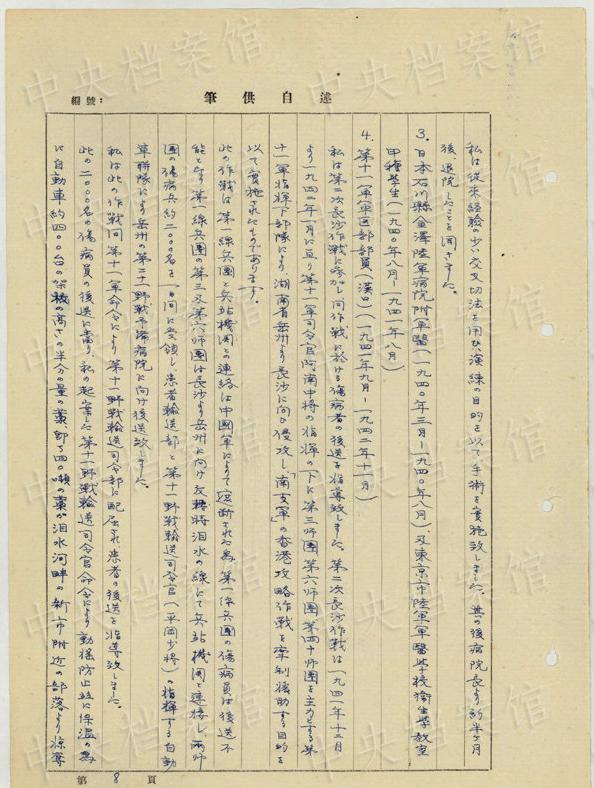 編號：
述自供筆
私は従来経験少い交叉切法を用ひ演練の目的を以て手術を実施致しました。其の後病院長より約半ヶ月
後退院したことを聞きました。
3. 日本石川縣金澤陸軍病院附軍醫(一九四〇年三月—一九四〇年八月)、及東京市陸軍軍醫学校衛生学教室
甲種学生(一九四〇年八月—一九四一年八月)
4. 第十一軍軍医部部員(漢口)(一九四一年九月—一九四二年十一月)
私は第二次長沙作戦に参加し同作戦に於ける傷病者の後送を指導致しました。第二次長沙作戦は一九四一年十二月
より一九四二年一月に亘り第十一軍司令官阿南中将の指揮の下に第三师團第六师團第四十师團を主力とする第
十一軍指揮下部隊により、湖南省岳州より長沙に向ひ侵攻し「南支軍」の香港攻略作戦を牽制援助する目的を
以て実施されたものであります。
此の作戦は第一線兵團と兵站機関との連絡は中國軍によって遮断された為第一線兵團の傷病員は後送不
能となり第一線兵團第三及第六师團は長沙より岳州に向け反轉時汨水の線にて兵站機関と連接し、両师
團の傷病兵約二〇〇〇名を一日間に受領し患者輸送部と第十一野戦輸送司令官(平岡少将)の指揮する自動
車聯隊により岳州の第二十一野戦予備病院に向け後送致しました。
私は此の作戦間第十一軍命令により第十一野戦輸送司令部に配属され患者の後送を指導致しました。
此の二〇〇〇名の傷病員の後送に當り、私の起案した第十一野戦輸送司令官命令により動揺防止竝に保温の為
に自動車約四〇〇台の架橋の高さの半分の量の藁、即ち四〇噸の藁が汨水河畔の新市附近の部落より掠奪
第 8 頁
中央档案馆